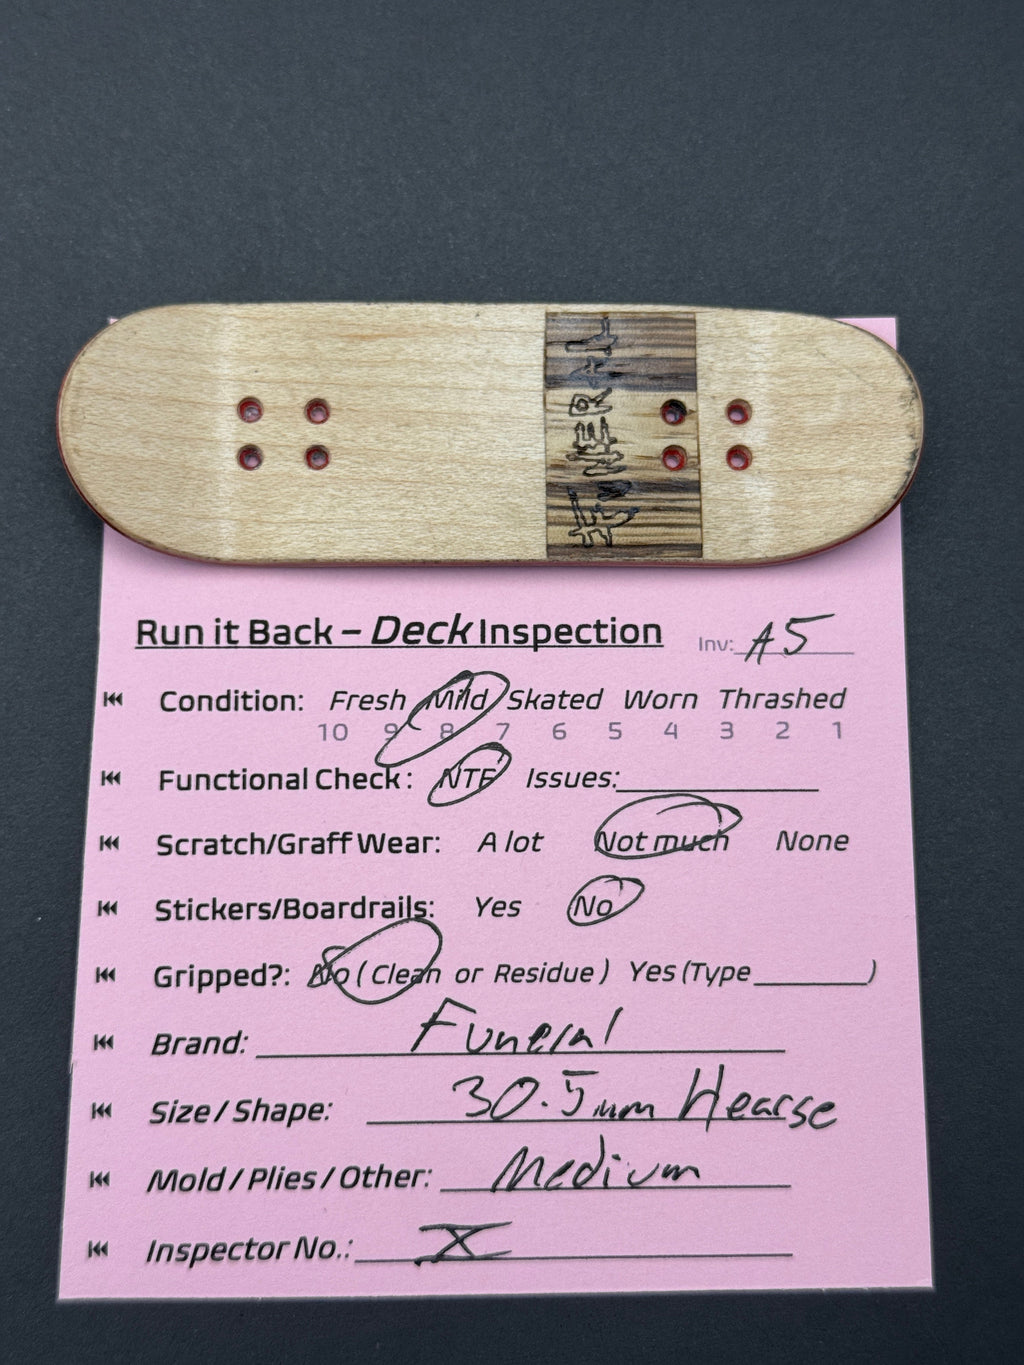 FUNERAL
Run it Back – Deck Inspection Inv: A5
Condition: Fresh Mild Skated Worn Thrashed
10 9 8 7 6 5 4 3 2 1
Functional Check: NTF Issues:
Scratch/Graff Wear: A lot Not much None
Stickers/Boardrails: Yes No
Gripped?: No (Clean or Residue) Yes (Type )
Brand: Funeral
Size / Shape: 30.5mm Hearse
Mold / Plies / Other: Medium
Inspector No.: X